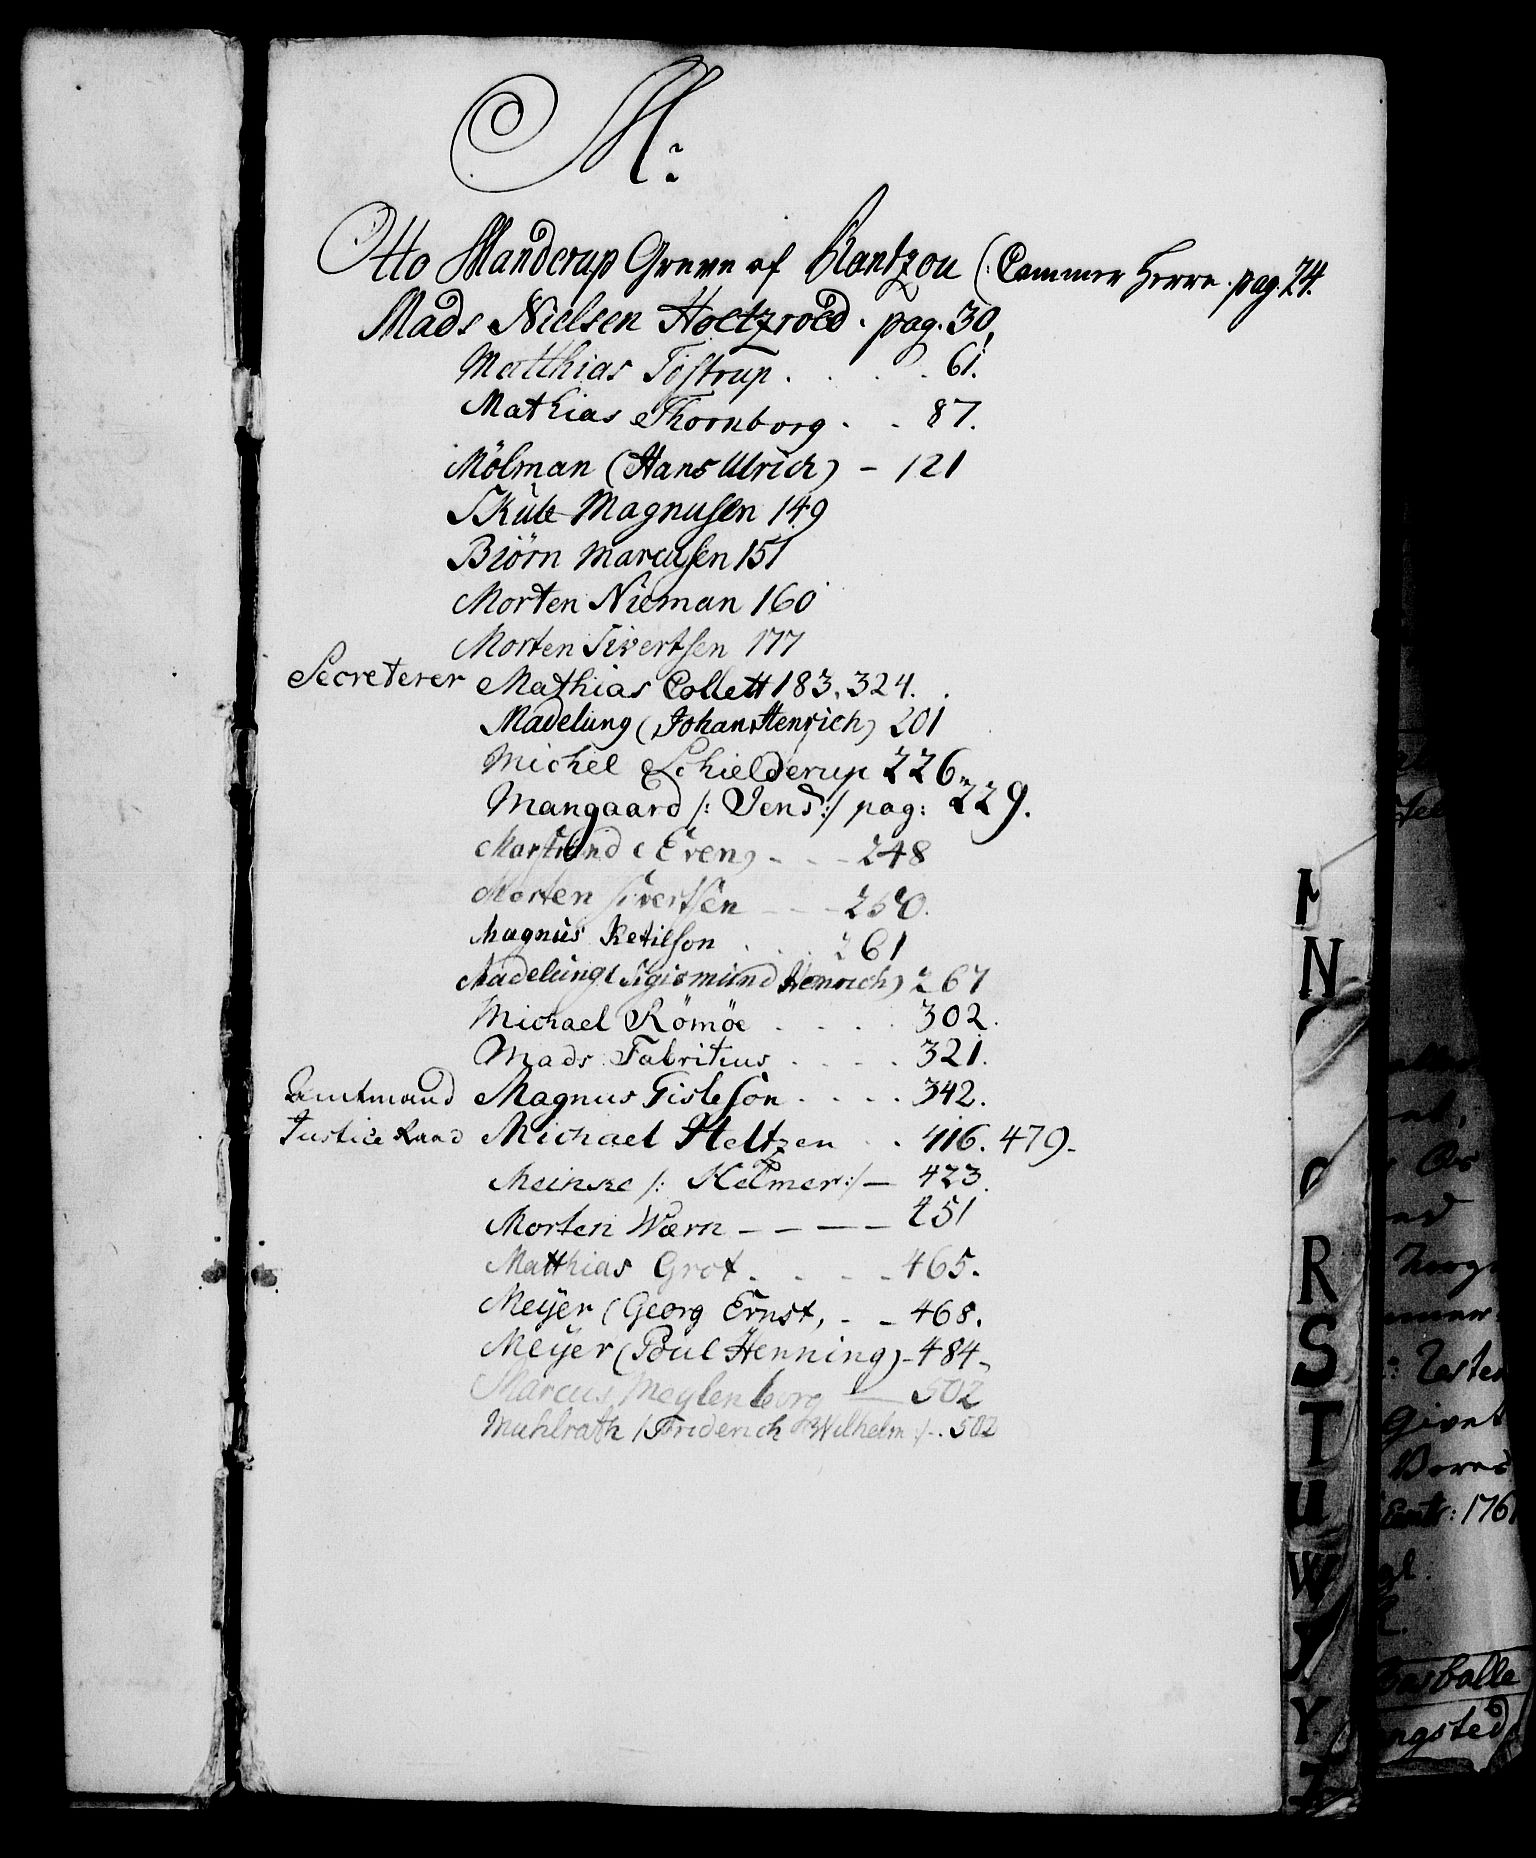 M:
Otto Manderup Greve af Rantzou (: Cammer Herre. pag. 24.
Mads Nielsen Holtzroed. pag. 30,
Matthias Tostrup . . . . 61.
Mathias Thornborg . . 87.
Mölman (Hans Ulrich) – 121
Skule Magnusen 149
Biörn Marcusen 151
Morten Nieman 160
Morten Sivertsen 177
Secreterer Mathias Collett 183. 324.
Madelung (Johan Henrich) 201
Michel Schielderup 226.
Mangaard /: Jens :/ pag: 229.
(Even) - - - 248
Morten Sivertsen - - - 250.
Magnus Ketilson . . . 261
Madelung (Sigismund Henrich) 267
Michael Römöe . . . . 302.
Mads Fabritius . . . . 321.
Amtmand Magnus Gisleson . . . . 342.
Justice Raad Michael Heltzen . . 416. 479.
Meincke /: Helmer :/ – 423.
Morten Wærn – – – – 451
Matthias Grot . . . . 465.
Meÿer (Georg Ernst, - - 468.
Meÿer (Poul Henning) - 484.
Marcus Meylenborg — 502
Muhlrath /: Friderich Wilhelm :/ - . 502
N
R
S
T
U
W
Y
Z
Givet
1761